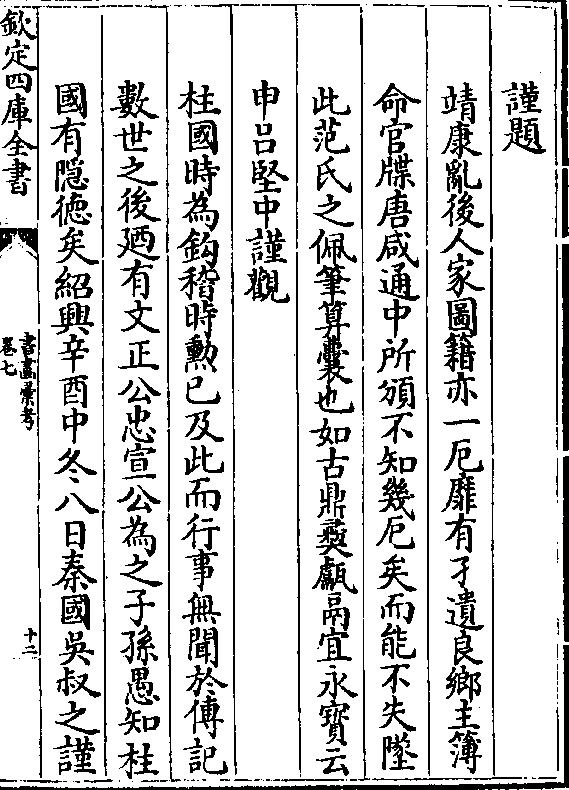 謹題
靖康亂後人家圖籍亦一厄靡有孑遺良鄉主簿
命官牒唐咸通中所頒不知幾厄矣而能不失墜
此范氏之佩筆算囊也如古鼎彛甗鬲宜永寳云
申吕堅中謹觀
柱國時為鈎稽時勲已及此而行事無聞於傳記
數世之後廼有文正公忠宣公為之子孫愚知柱
國有隠徳矣紹興辛酉中冬八日秦國吳叔之謹
欽定四庫全書
書畫彚考
卷七
十二